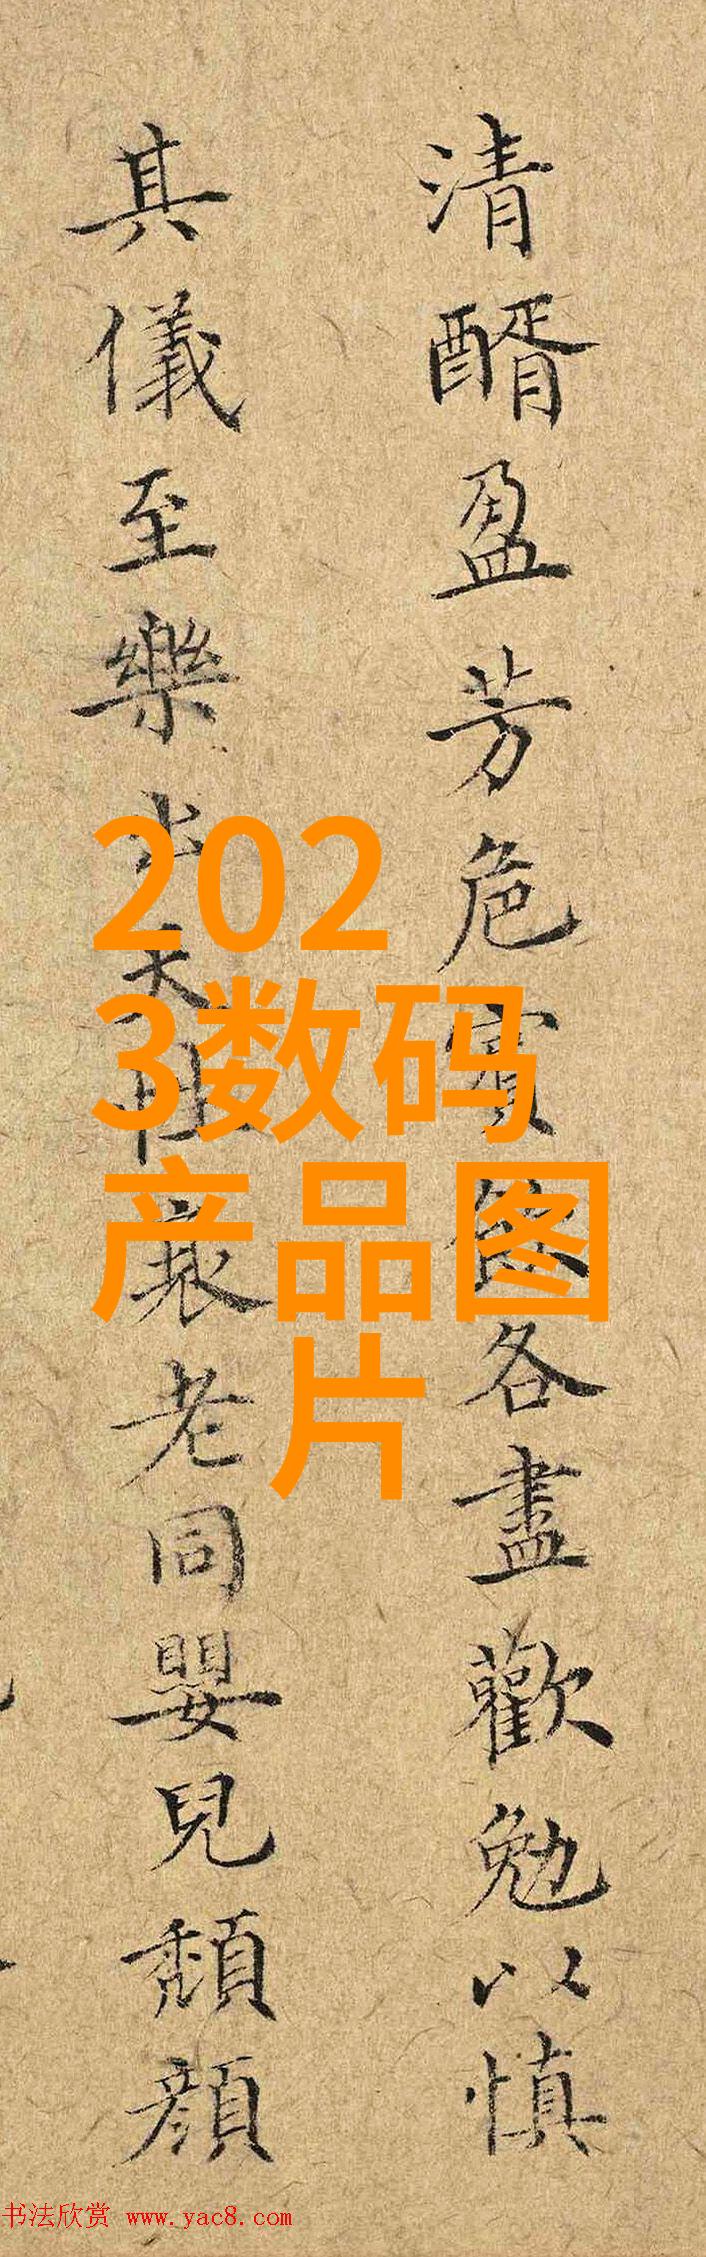 清醑盈芳巵賓各盡歡勉以慎
其儀至樂出天性衰老同嬰兒頹顏
202
3数码
产品图
片
书法欣赏 www.yac8.com